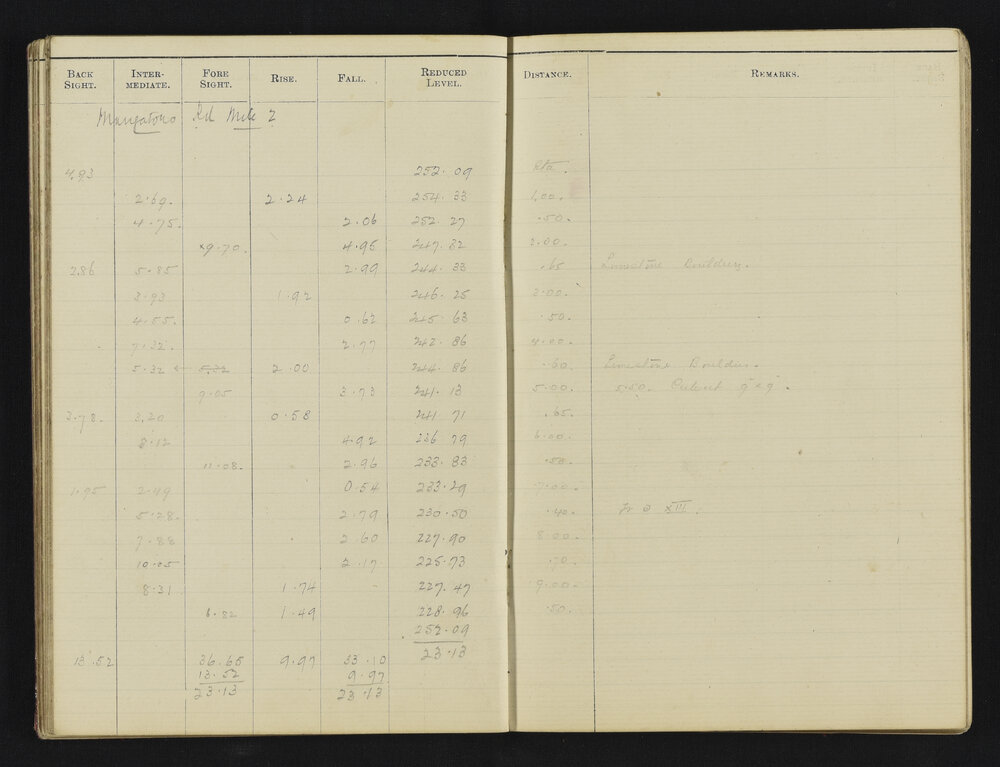 BACK SIGHT. INTER-MEDIATE. FORE SIGHT. RISE. FALL. REDUCED LEVEL. DISTANCE. REMARKS.
Rd Mile 2
4.93 252.09
2.69. 2.24 254.33 1.00.
4.75. 2.06 252.27 .50.
×9.70 4.95 247.32 2.00.
2.86 5.85 2.99 244.33 .65 Limestone Boulders.
3.93 1.92 246.25 3.00.
4.55. 0.62 245.63 .50.
7.32. 2.77 242.86 4.00.
5.32 ← 5.32 2.00 244.86 .60. Limestone Boulders.
9.05 3.73 241.13 5.00. 5.50. Culvert
3.78. 3.20 0.58 241.71 .65.
8.12 4.92 236.79 6.00.
11.08. 2.96 233.83 .50.
1.95 2.49 0.54 233.29 7.00.
5.28. 2.79 230.50 .40. XIII.
7.88 2.60 227.90 8.00.
10.05 2.17 225.73 .70.
8.31 1.74 227.47 9.00.
6.82 1.49 228.96 .50.
252.09
13.52 36.65 9.97 33.10 23.13
13.52 9.97
23.13 23.13